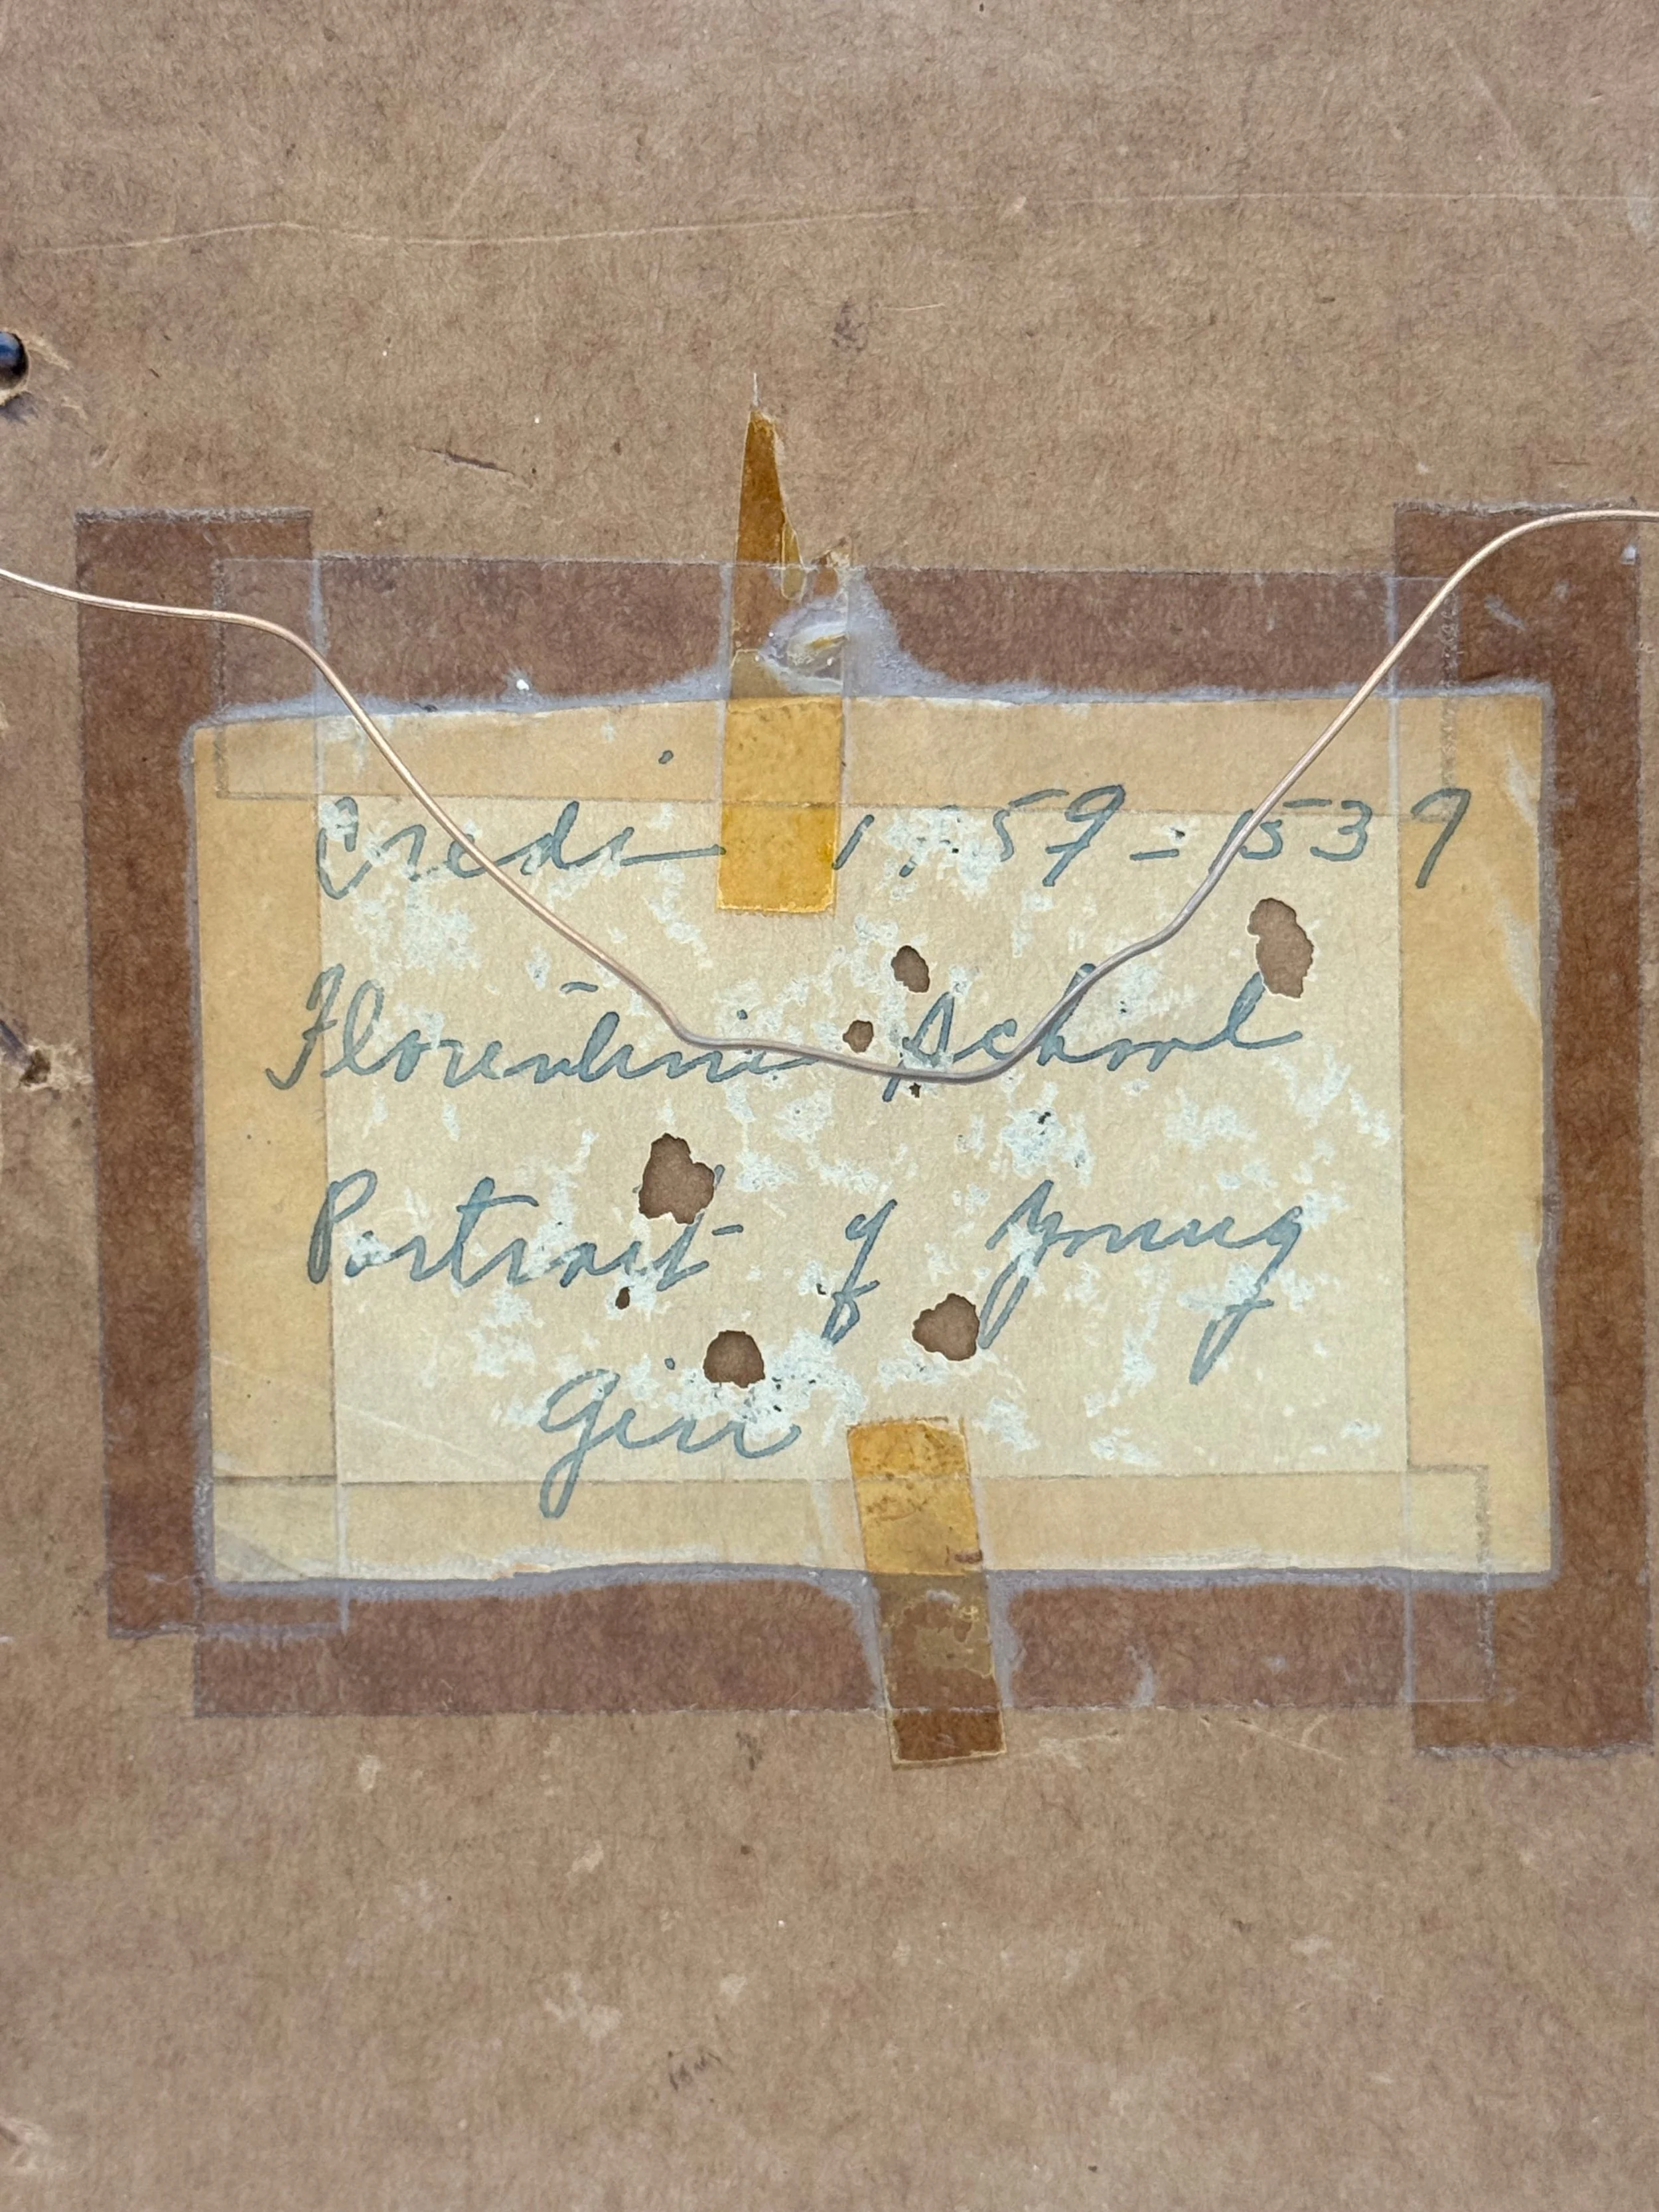 Credi 1459-1537
Florentine School
Portrait of Young
Girl